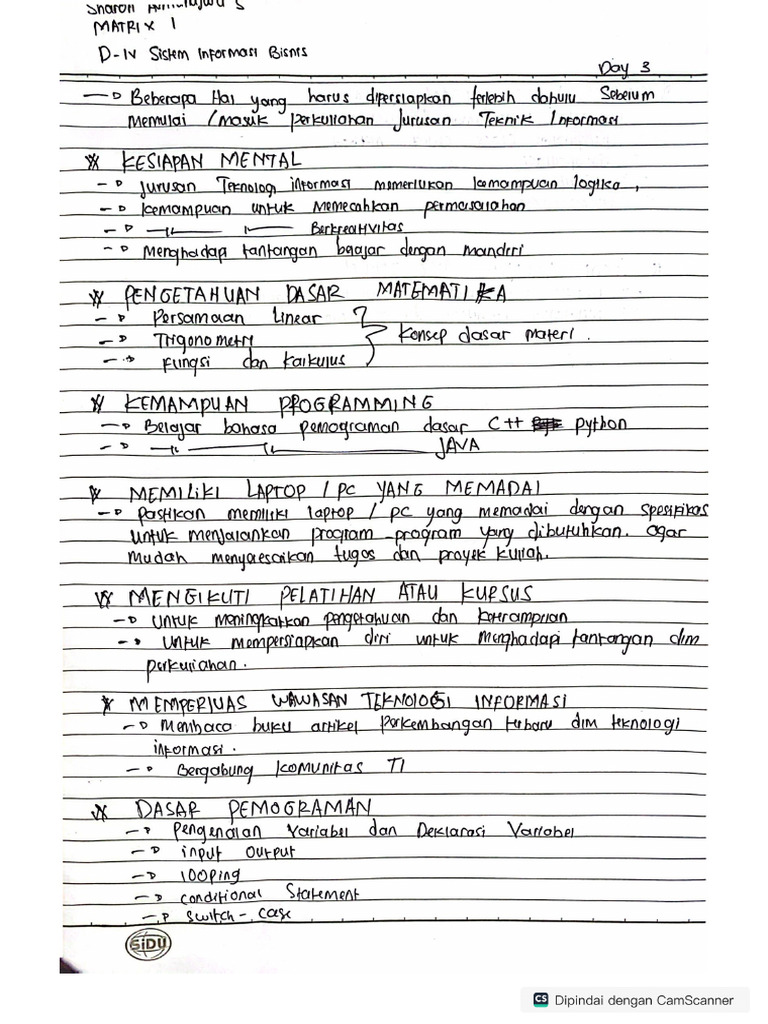 Sharon
MATRIX 1
D-IV Sistem Informasi Bisnis
Day 3
Beberapa Hal yang harus dipersiapkan terlebih dahulu Sebelum
Memulai / masuk perkuliahan Jurusan Teknik Informasi
KESIAPAN MENTAL
Jurusan Teknologi informasi memerlukan kemampuan logika,
kemampuan untuk Memecahkan permasalahan
Berkreativitas
Menghadap tantangan belajar dengan mandiri
PENGETAHUAN DASAR MATEMATIKA
Persamaan Linear
Trigonometri
Fungsi dan Kalkulus
Konsep dasar materi.
KEMAMPUAN PROGRAMMING
Belajar bahasa pemograman dasar C++ python
JAVA
MEMILIKI LAPTOP / PC YANG MEMADAI
Pastikan memiliki laptop / pc yang memadai dengan spesifikas
untuk menjalankan program-program yang dibutuhkan. agar
mudah menyelesaikan tugas dan proyek kuliah.
MENGIKUTI PELATIHAN ATAU KURSUS
Untuk meningkatkan pengetahuan dan keterampilan
Untuk mempersiapkan diri untuk menghadapi tantangan dlm
perkuliahan.
MEMPERLUAS WAWASAN TEKNOLOGI INFORMASI
Membaca buku artikel perkembangan terbaru dlm teknologi
informasi.
Bergabung komunitas TI
DASAR PEMOGRAMAN
Pengenalan Variabel dan Deklarasi Variabel
input output
looping
conditional Statement
switch - case
SiDU
CS Dipindai dengan CamScanner